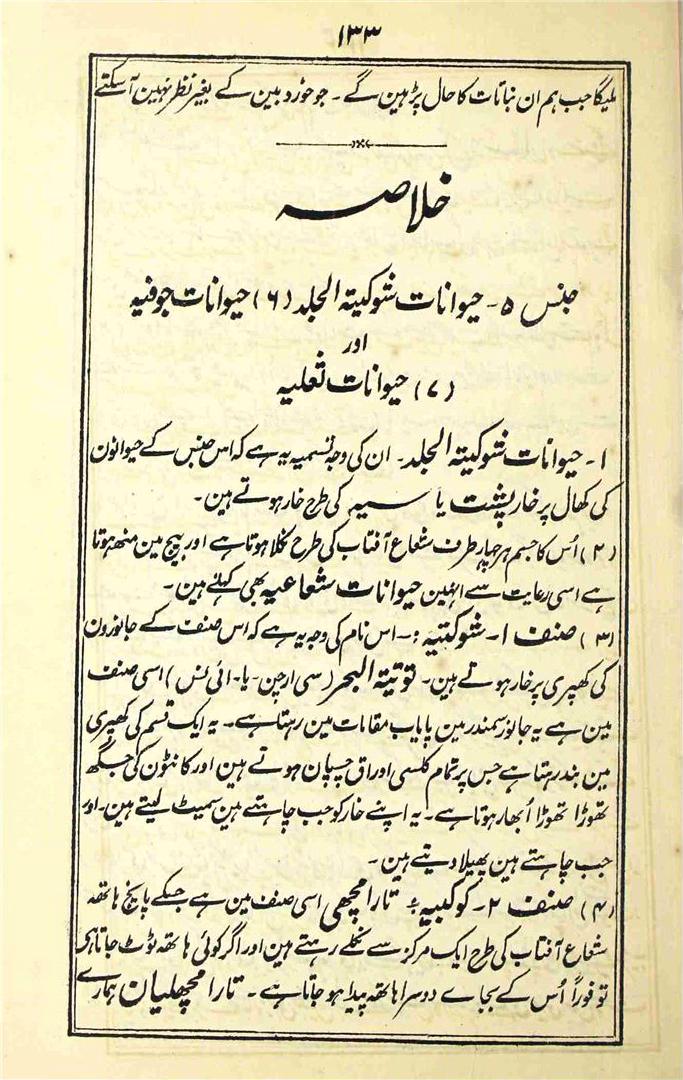 ۱۳۳
ملیگا جب ہم ان نباتات کا حال پڑہین گے۔ جو خورد بین کے بغیر نظر نہین آسکتے
خلاصہ
جنس ۵۔ حیوانات شوکیتہ الجلد (۶) حیوانات جوفیہ
اور
(۷) حیوانات نعلیہ
۱۔ حیوانات شوکیتہ الجلد۔ ان کی وجہ تسمیہ یہ ہے کہ اس جنس کے حیوانون
کی کھال پر خارپشت یا سیہ کی طرح خار ہوتے ہین۔
(۲) اُس کا جسم ہر چہار طرف شعاع آفتاب کی طرح نکلا ہوتا ہے اور بیچ مین منھ ہوتا
ہے اسی رعایت سے انہین حیوانات شعاعیہ بھی کہتے ہین۔
(۳) صنف ۱۔ شوکتیہ :۔ اس نام کی وجہ یہ ہے کہ اس صنف کے جانورون
کی کھپری پر خار ہوتے ہین۔ توتیتہ البحر (سی ارچن۔ یا۔ ائی نس) اسی صنف
مین ہے یہ جانور سمندر مین پایاب مقامات مین رہتا ہے۔ یہ ایک قسم کی کھپری
مین بند رہتا ہے جس پر تمام کلسی اوراق چسپان ہوتے ہین اور کانٹون کی جگھ
تھوڑا تھوڑا اُبھار ہوتا ہے۔ یہ اپنے خار کو جب چاہتے ہین سمیٹ لیتے ہین۔ اور
جب چاہتے ہین پھیلا دیتے ہین۔
(۴) صنف ۲۔ کوکبیہ :۔ تارا مچھی اسی صنف مین ہے جسکے پانچ ہاتھ
شعاع آفتاب کی طرح ایک مرکز سے نکلے رہتے ہین اور اگر کوئی ہاتھ ٹوٹ جاتا ہی
تو فوراً اُس کے بجاے دوسرا ہاتھ پیدا ہو جاتا ہے۔ تارا مچھلیان ہمارے